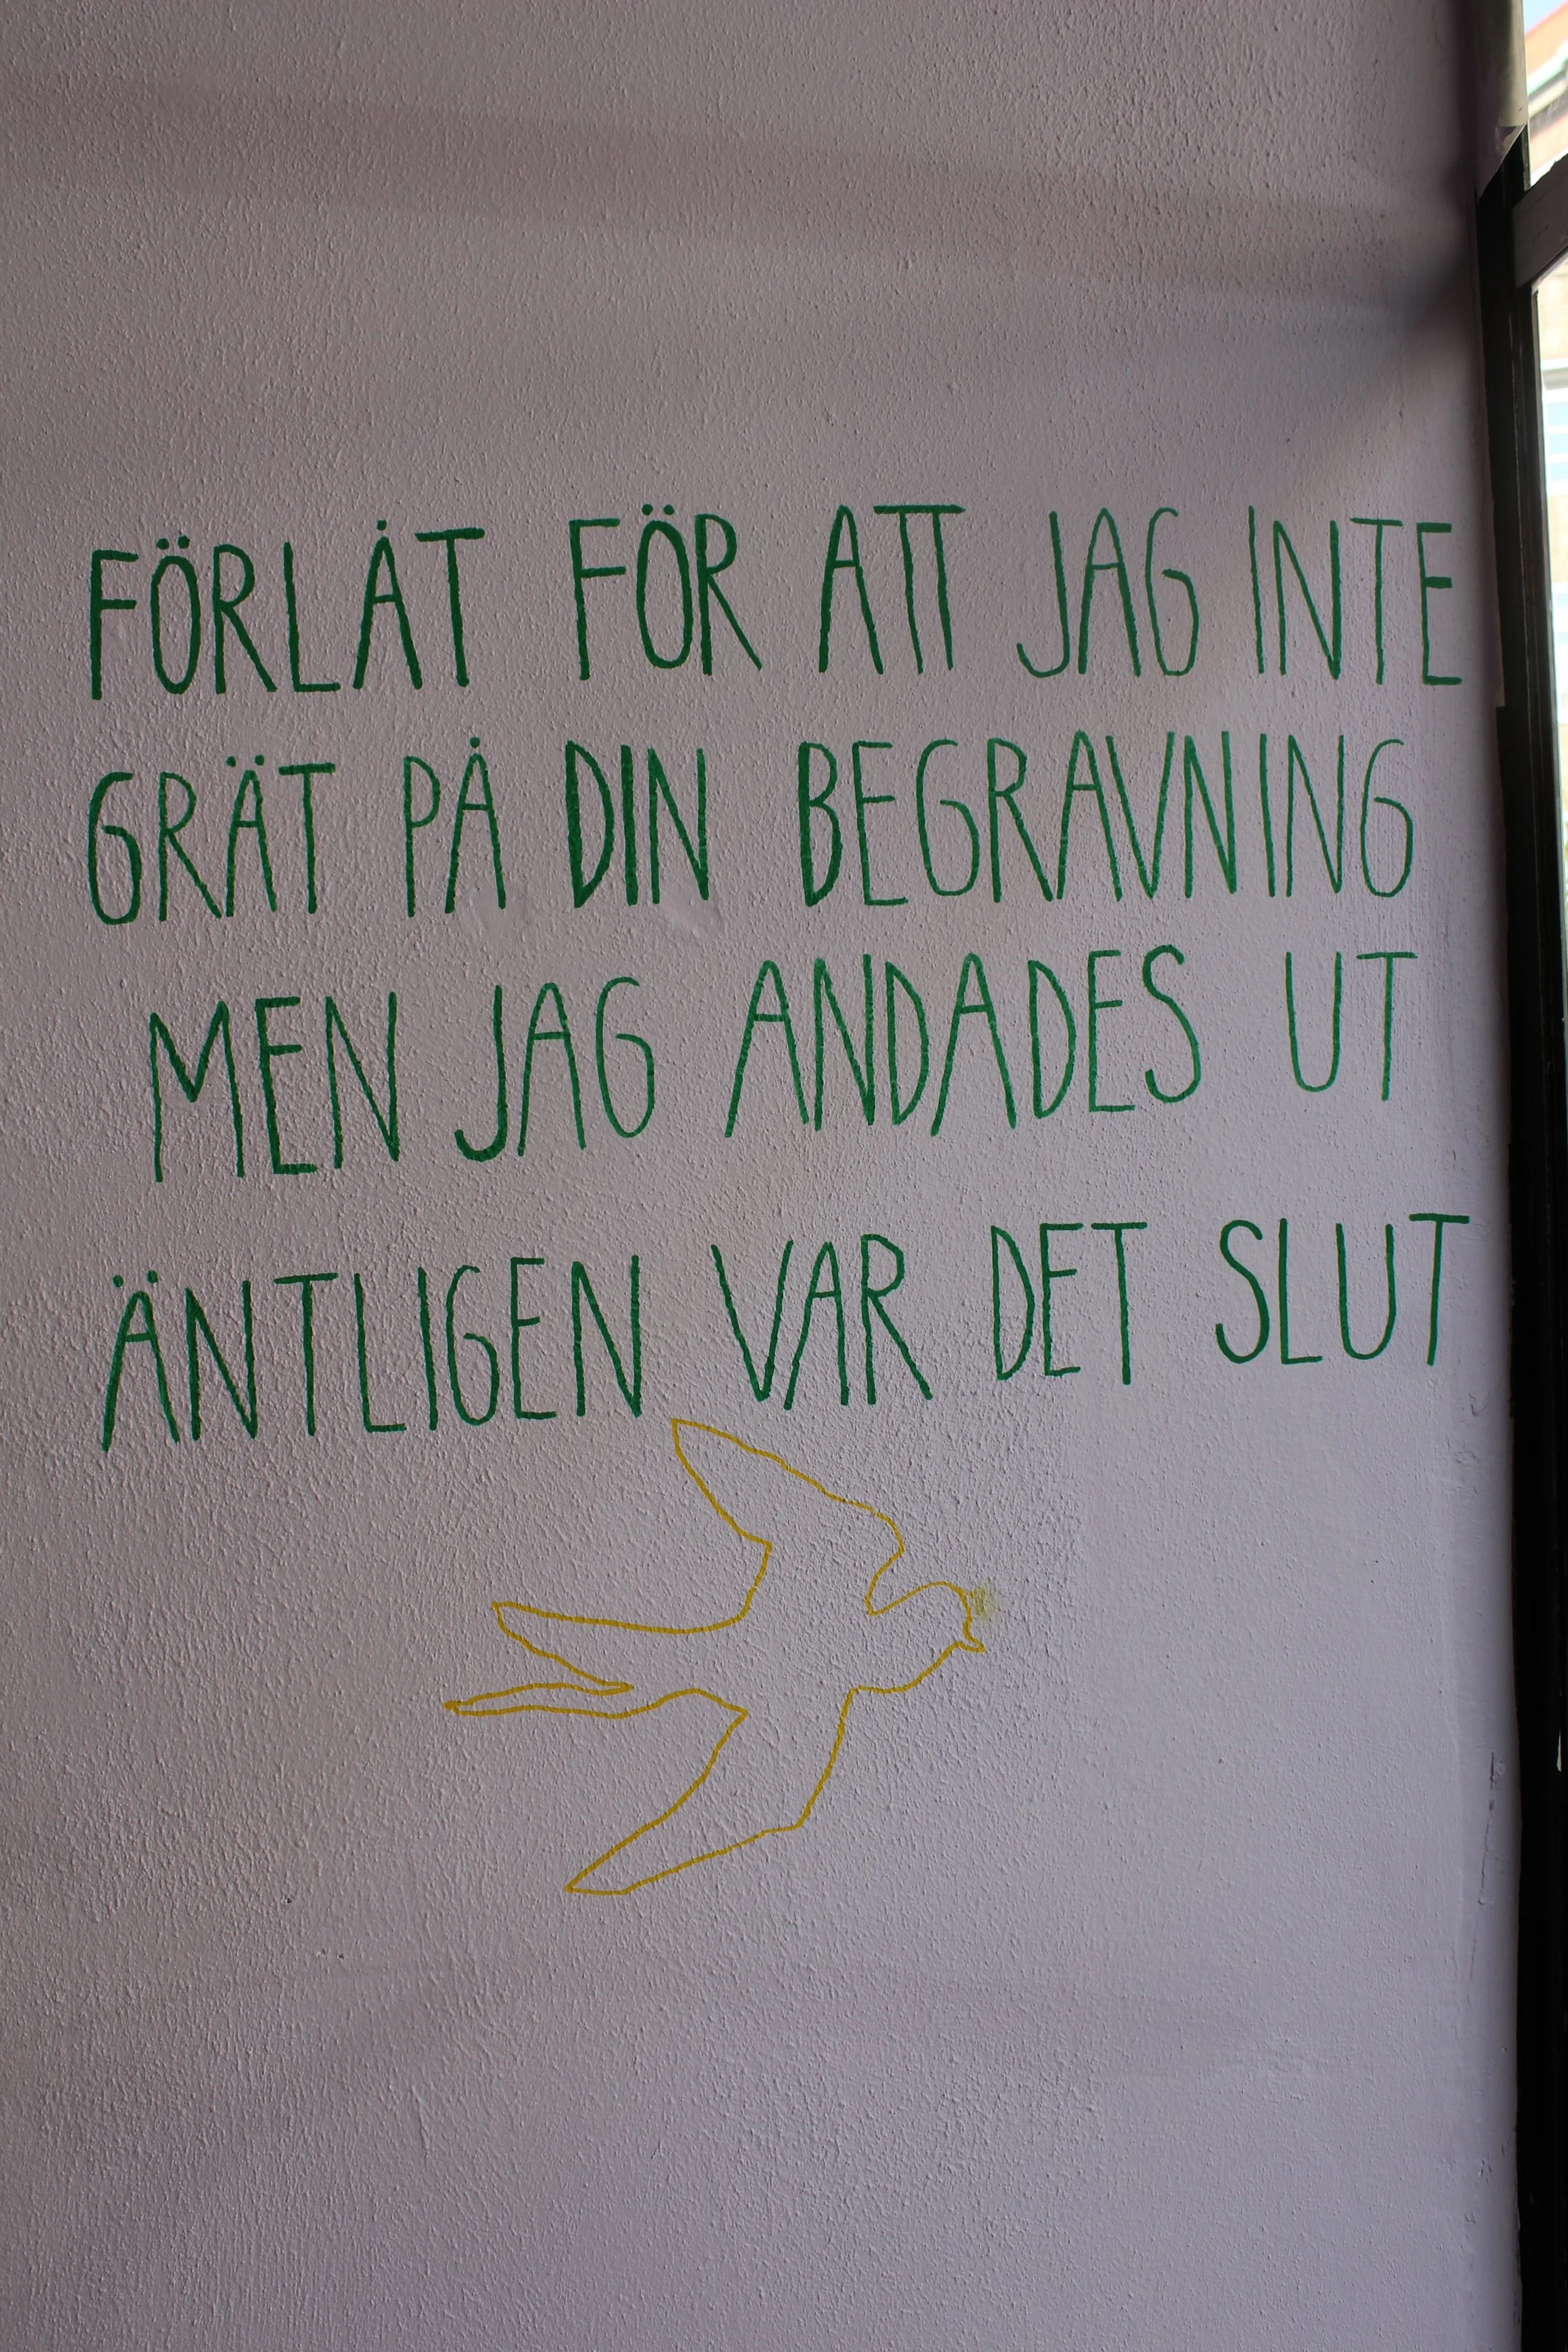 FÖRLÅT FÖR ATT JAG INTE
GRÄT PÅ DIN BEGRAVNING
MEN JAG ANDADES UT
ÄNTLIGEN VAR DET SLUT